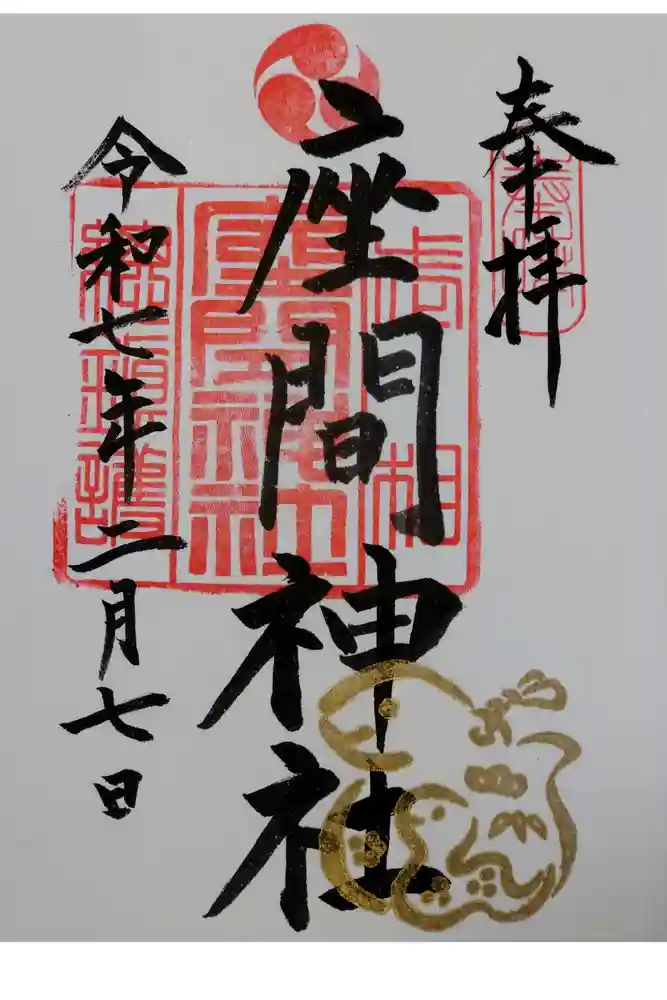 奉拝
座間神社
令和七年二月七日